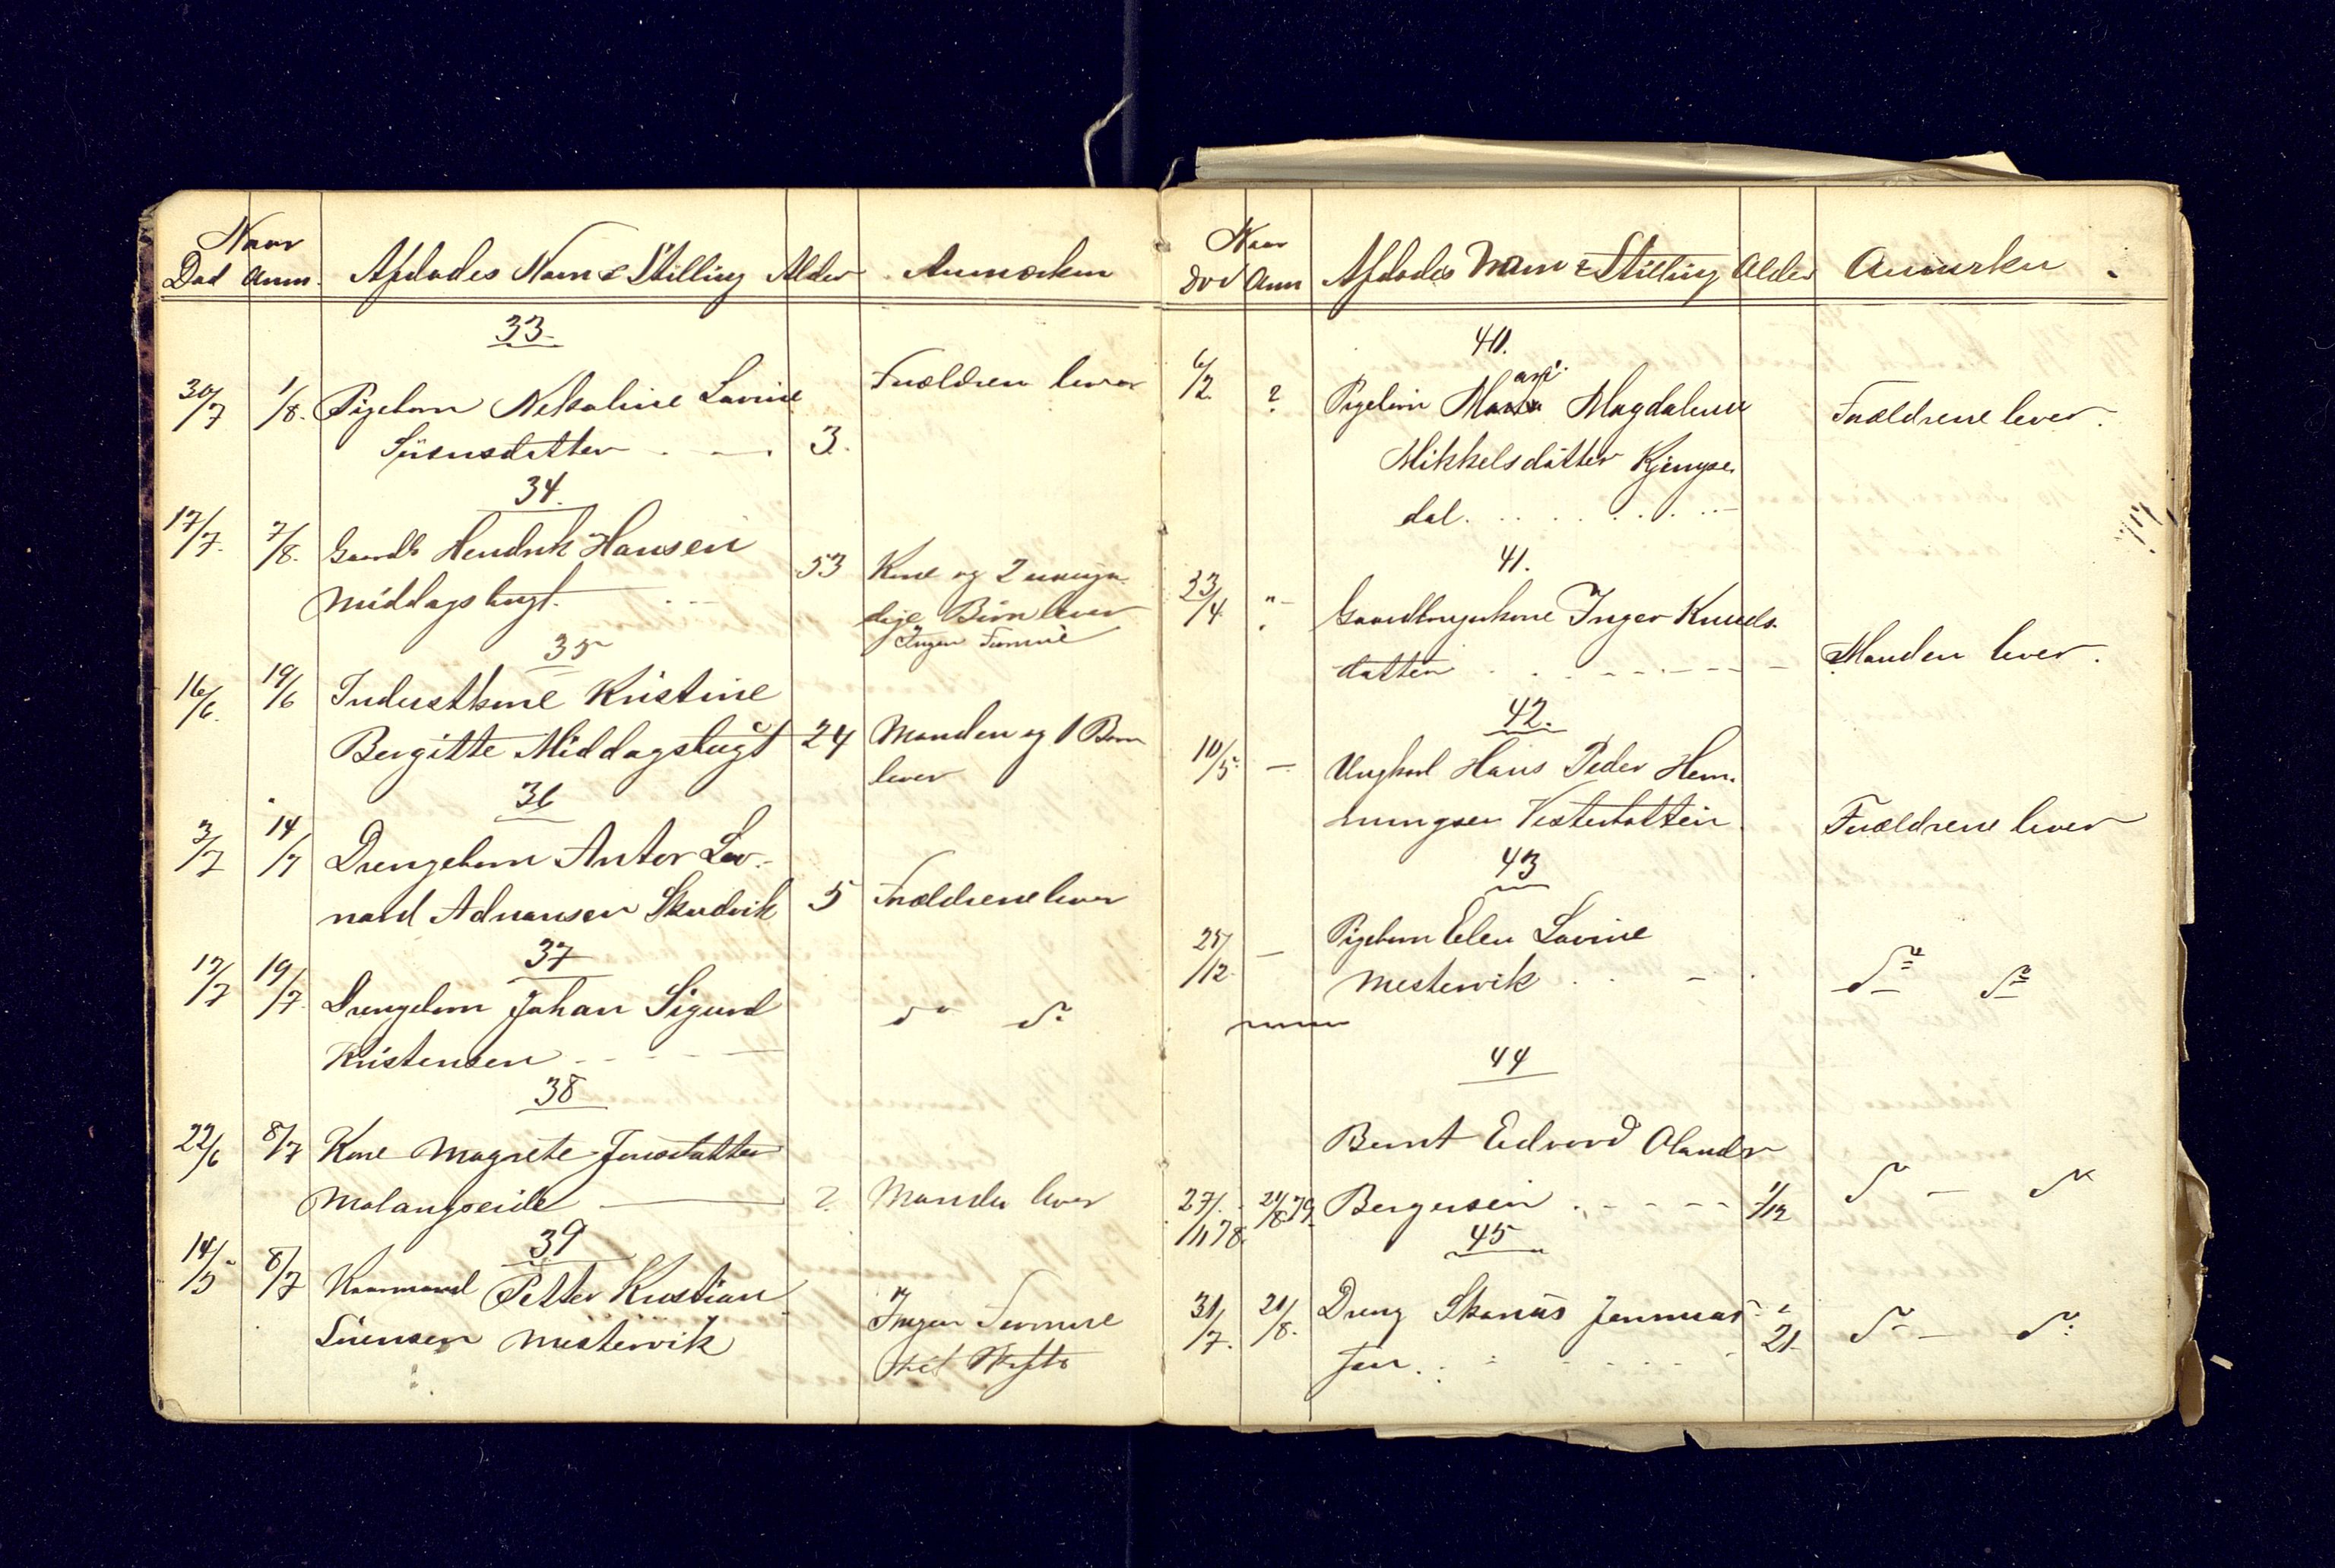 Naar
Død Anm. Afdødes Navn & Stilling Alder Anmærkn
33.
30/7 1/8. Pigebarn Nekoline Lavine Forældren lever
Sørensdatter . — . 3.
34.
17/7. 7/8. Gaardb Hendrik Hansen
Middagsbugt. 53 Kone og 2 umyn-
dige Børn lever
Ingen Formue
35
16/6. 19/6 Inderstkone Kristine
Bergitte Middagsbugt 24 Manden og 1 Barn
lever
36
3/7 14/7 Drengebarn Anton Leo-
nard Adriansen Skudvik 5 Forældrene lever
37
17/7 19/7. Drengebarn Johan Sigurd do do
Kristensen - - - -
38
22/6 8/7 Kone Magrete Jensdatter
Malangseide — ? Manden lever
39
14/5 8/7 Kaarmand Petter Kristian
Sørensen Mestervik Ingen Formue
Skifte
Naar
Død Anm Afdødes Navn & Stilling Alder Anmerkn.
40.
6/2. ? Pigebarn Mari Magdalena Forældrene lever.
Mikkelsdatter Kjengse
dal. . . . . . .
41.
23/4. " Gaardbrugerkone Inger Knuds-
datter . . - - - - - Manden lever.
42.
10/5. — Ungkarl Hans Peder Hem-
mingsen Vesterbotten. Forældrene lever
43
25/12. — Pigebarn Elen Lovine
Mestervik . . - . do do
44
Bernt Edvard Olaus
27/11 78. 21/8 79. Bergersen . - - - - 1/12 do — do
45
31/7. 21/8. Dreng Skonås Jenmas- 21. do — do
sen. . - - - -